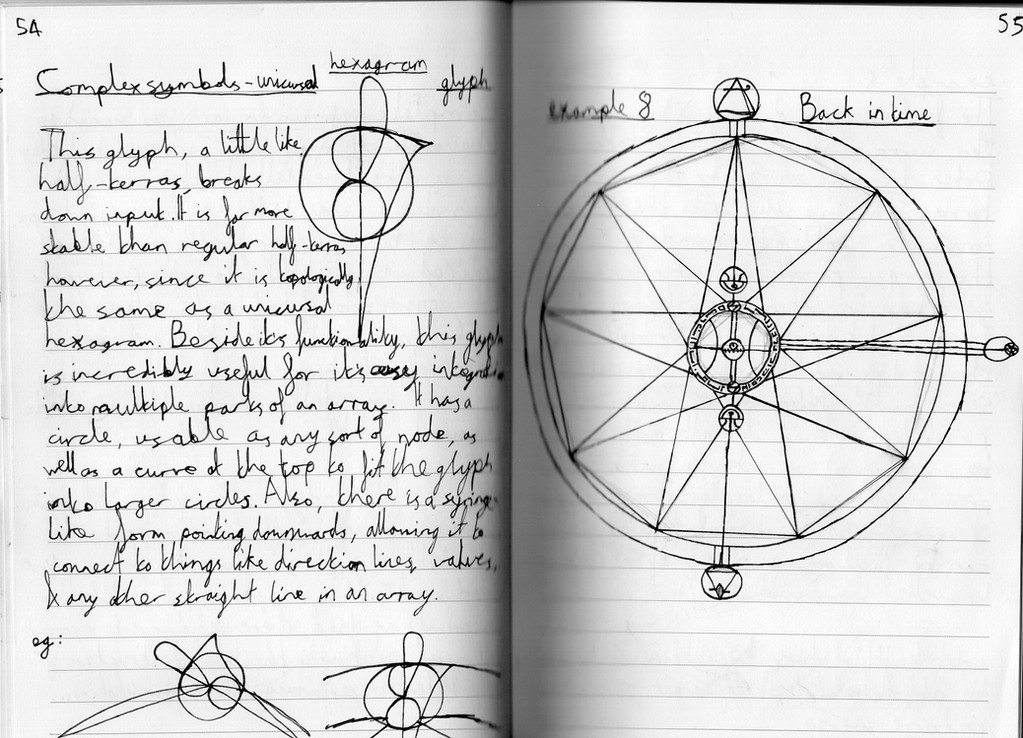 54
Complex symbols - unicursal hexagram glyph
This glyph, a little like
half-kerras, breaks
down input. It is far more
stable than regular half-kerras
however, since it is topologically
the same as a unicursal
hexagram. Beside its functionability, this glyph
is incredibly useful for it's easy integration
into multiple parts of an array. It has a
circle, usable as any sort of node, as
well as a curve at the top to fit the glyph
into larger circles. Also, there is a syringe-
like form pointing downwards, allowing it to
connect to things like direction lines, valves,
& any other straight line in an array.
eg:
55
example 8
Back in time